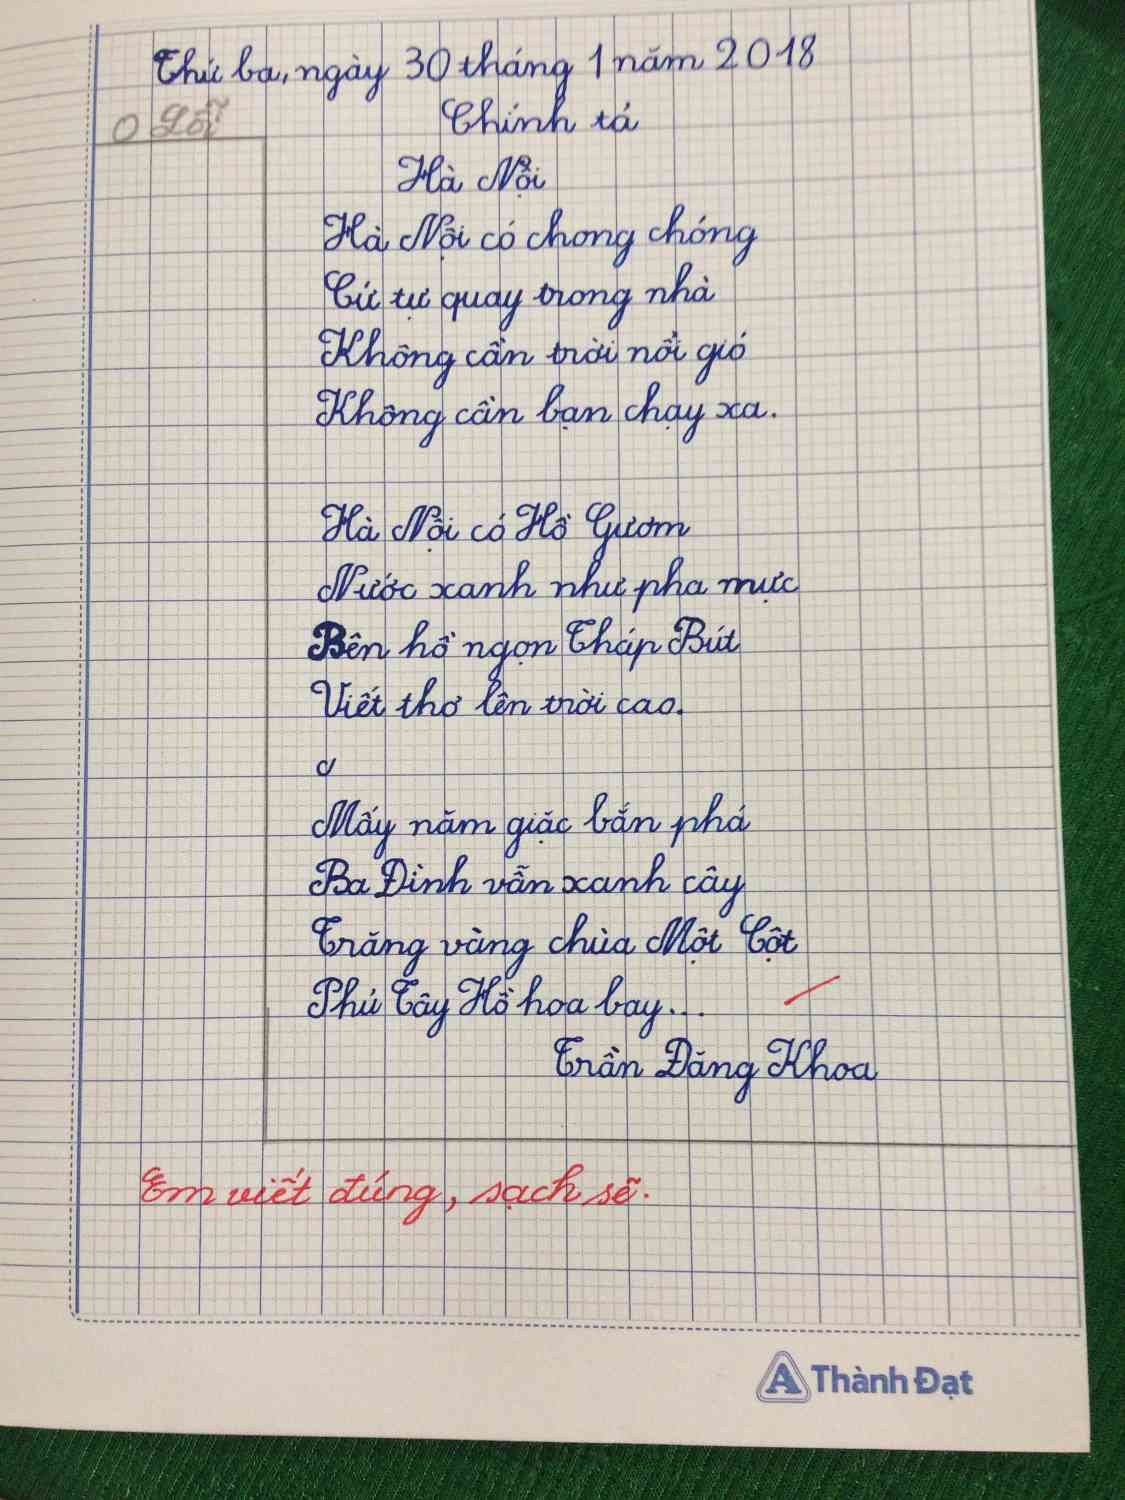 Thứ ba, ngày 30 tháng 1 năm 2018
0 Lỗi
Chính tả
Hà Nội
Hà Nội có chong chóng
Cứ tự quay trong nhà
Không cần trời nổi gió
Không cần bạn chạy xa.
Hà Nội có Hồ Gươm
Nước xanh như pha mực
Bên hồ ngọn Tháp Bút
Viết thơ lên trời cao.
Mấy năm giặc bắn phá
Ba Đình vẫn xanh cây
Trăng vàng chùa Một Cột
Phủ Tây Hồ hoa bay...
Trần Đăng Khoa
Em viết đúng, sạch sẽ.
A Thành Đạt